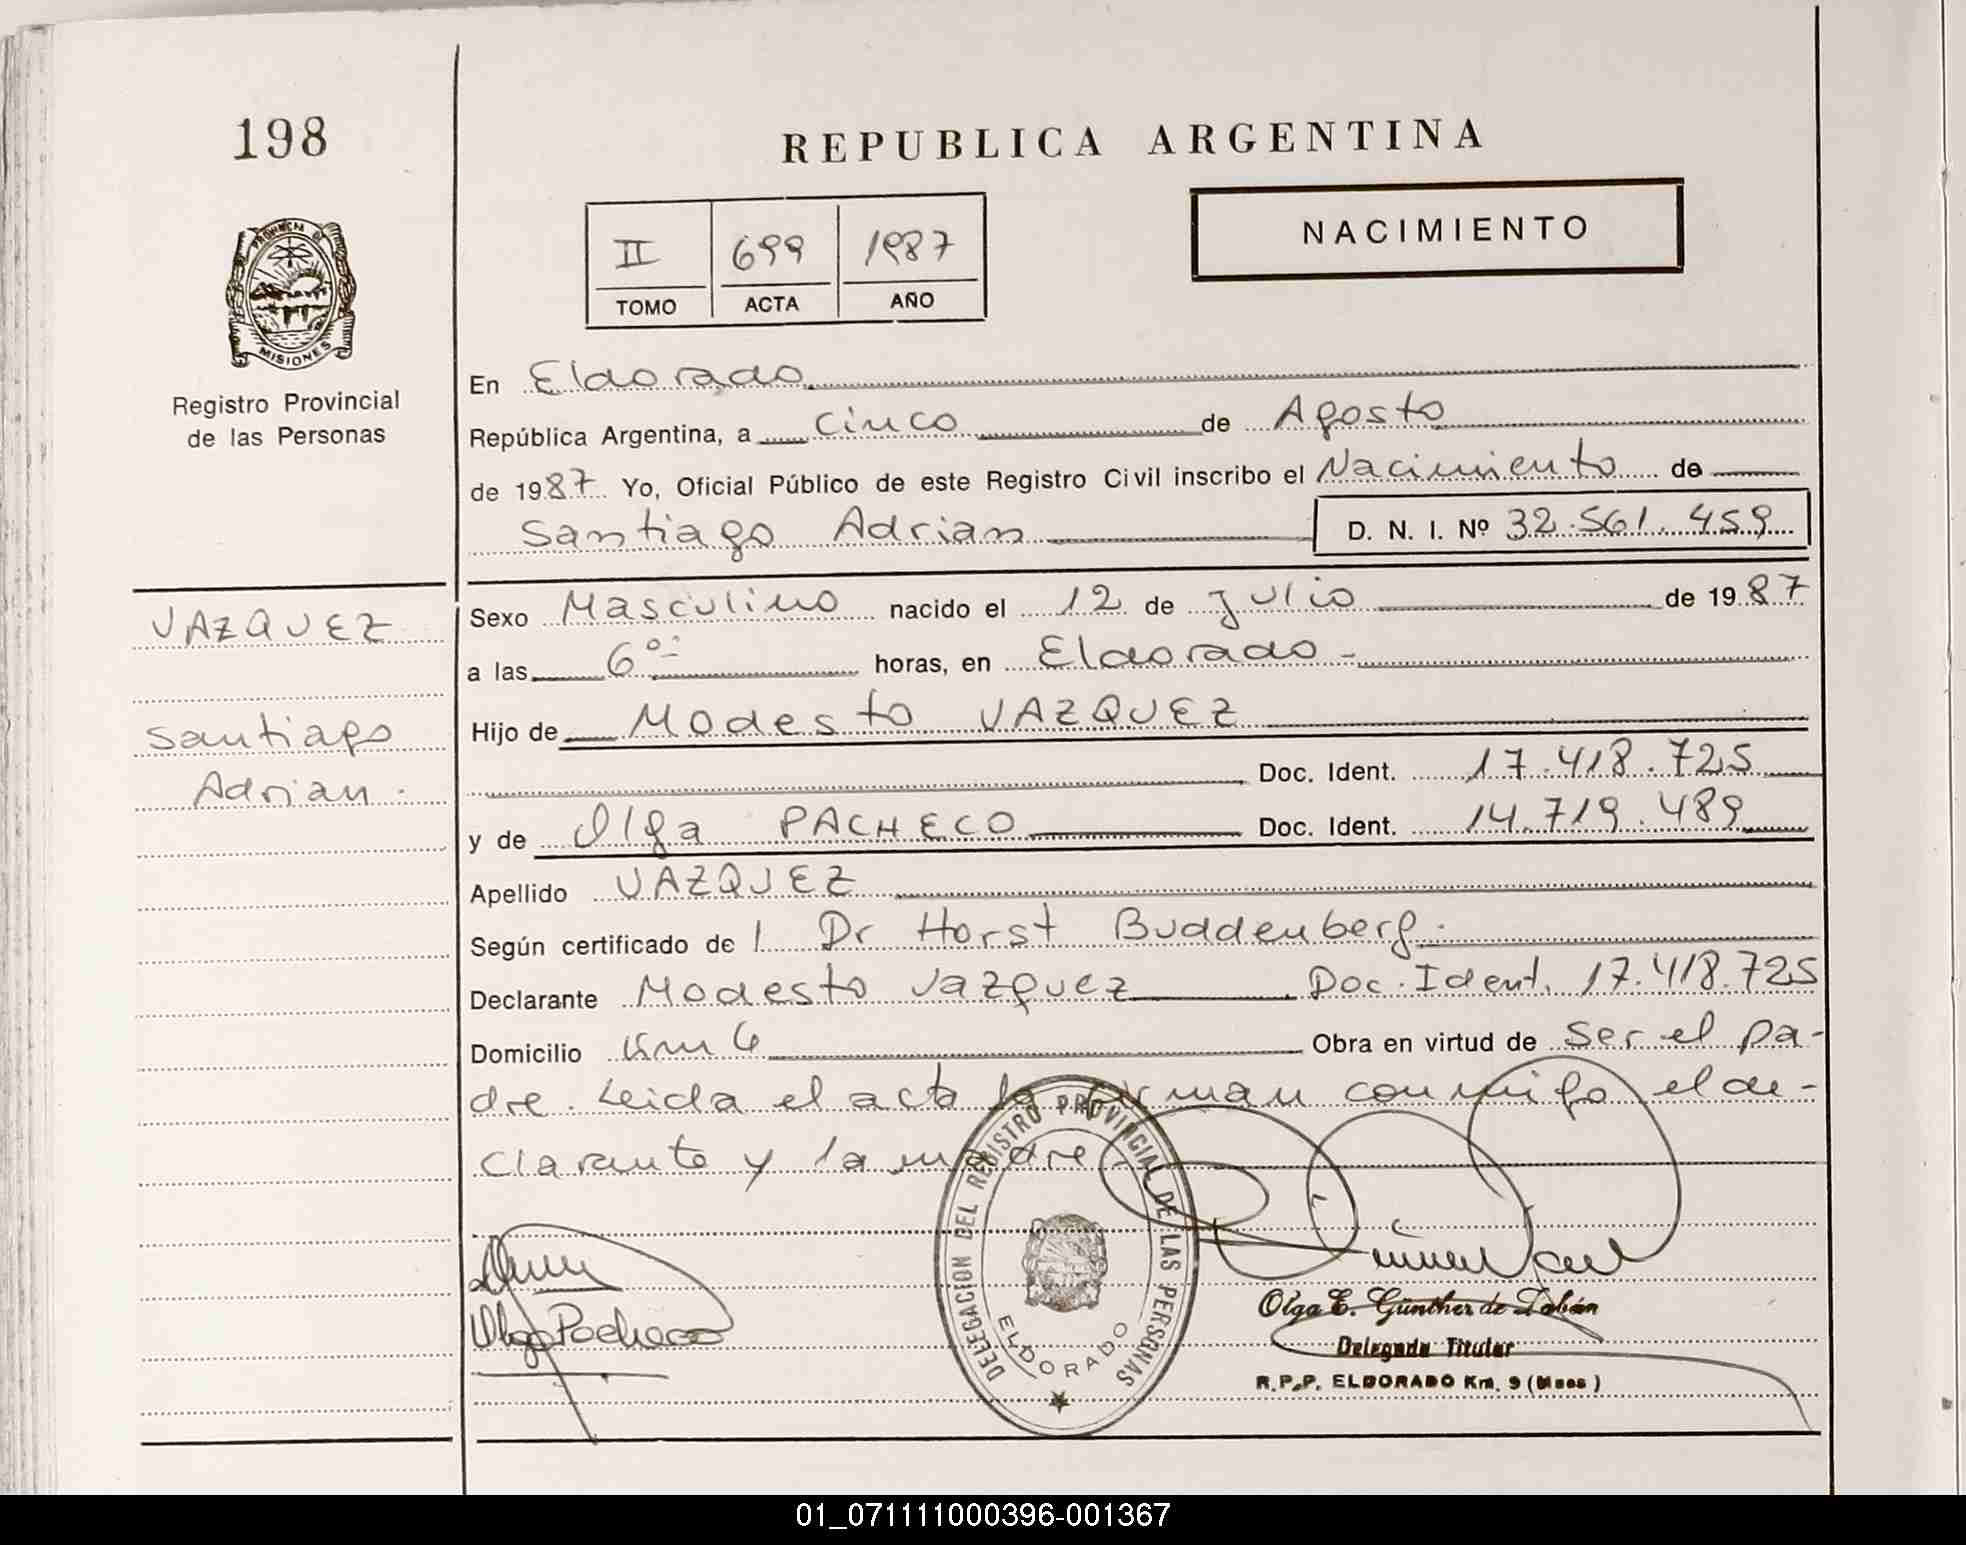 198
REPUBLICA ARGENTINA
PROVINCIA DE
MISIONES
Registro Provincial
de las Personas
II 699 1987
TOMO ACTA AÑO
NACIMIENTO
En Eldorado
República Argentina, a cinco de Agosto
de 1987. Yo, Oficial Público de este Registro Civil inscribo el Nacimiento de
Santiago Adrian D. N. I. Nº 32.561.459
VAZQUEZ
Santiago
Adrian.
Sexo Masculino nacido el 12 de julio de 1987
a las 6 horas, en Eldorado -
Hijo de Modesto VAZQUEZ
Doc. Ident. 17.418.725
y de Olga PACHECO Doc. Ident. 14.719.489
Apellido VAZQUEZ
Según certificado de l Dr Horst Buddenberg.
Declarante Modesto Vazquez Doc. Ident. 17.418.725
Domicilio Km 6 Obra en virtud de ser el pa-
dre. Leida el acta la firman conmigo el de-
clarante y la madre
Olga Pacheco
DELEGACION DEL REGISTRO PROVINCIAL DE LAS PERSONAS
ELDORADO
Olga E. Günther de Tabán
Delegada Titular
R.P.P. ELDORADO Km. 9 (Mnes)
01_071111000396-001367